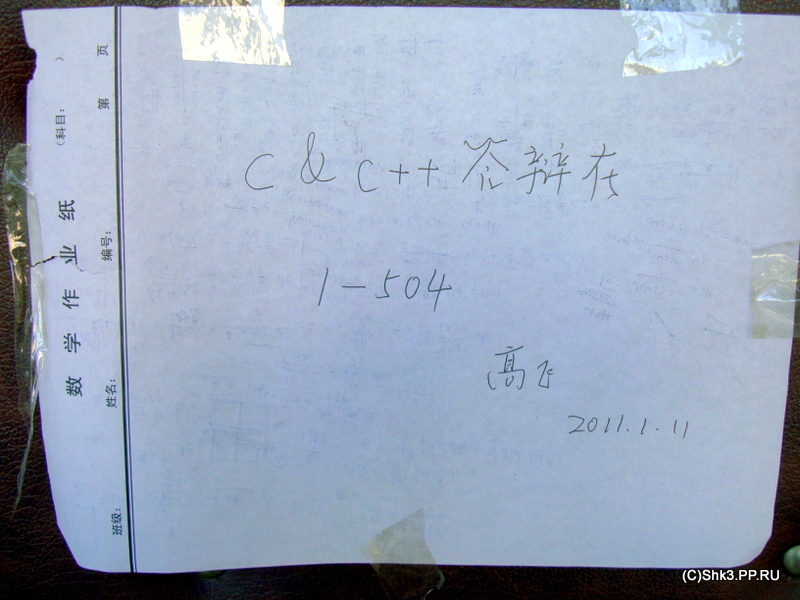 C & C++ 答辩在
1-504
高飞
2011.1.11
数学作业纸
(科目: )
班级: 姓名: 编号: 第 页
(C)Shk3.PP.RU